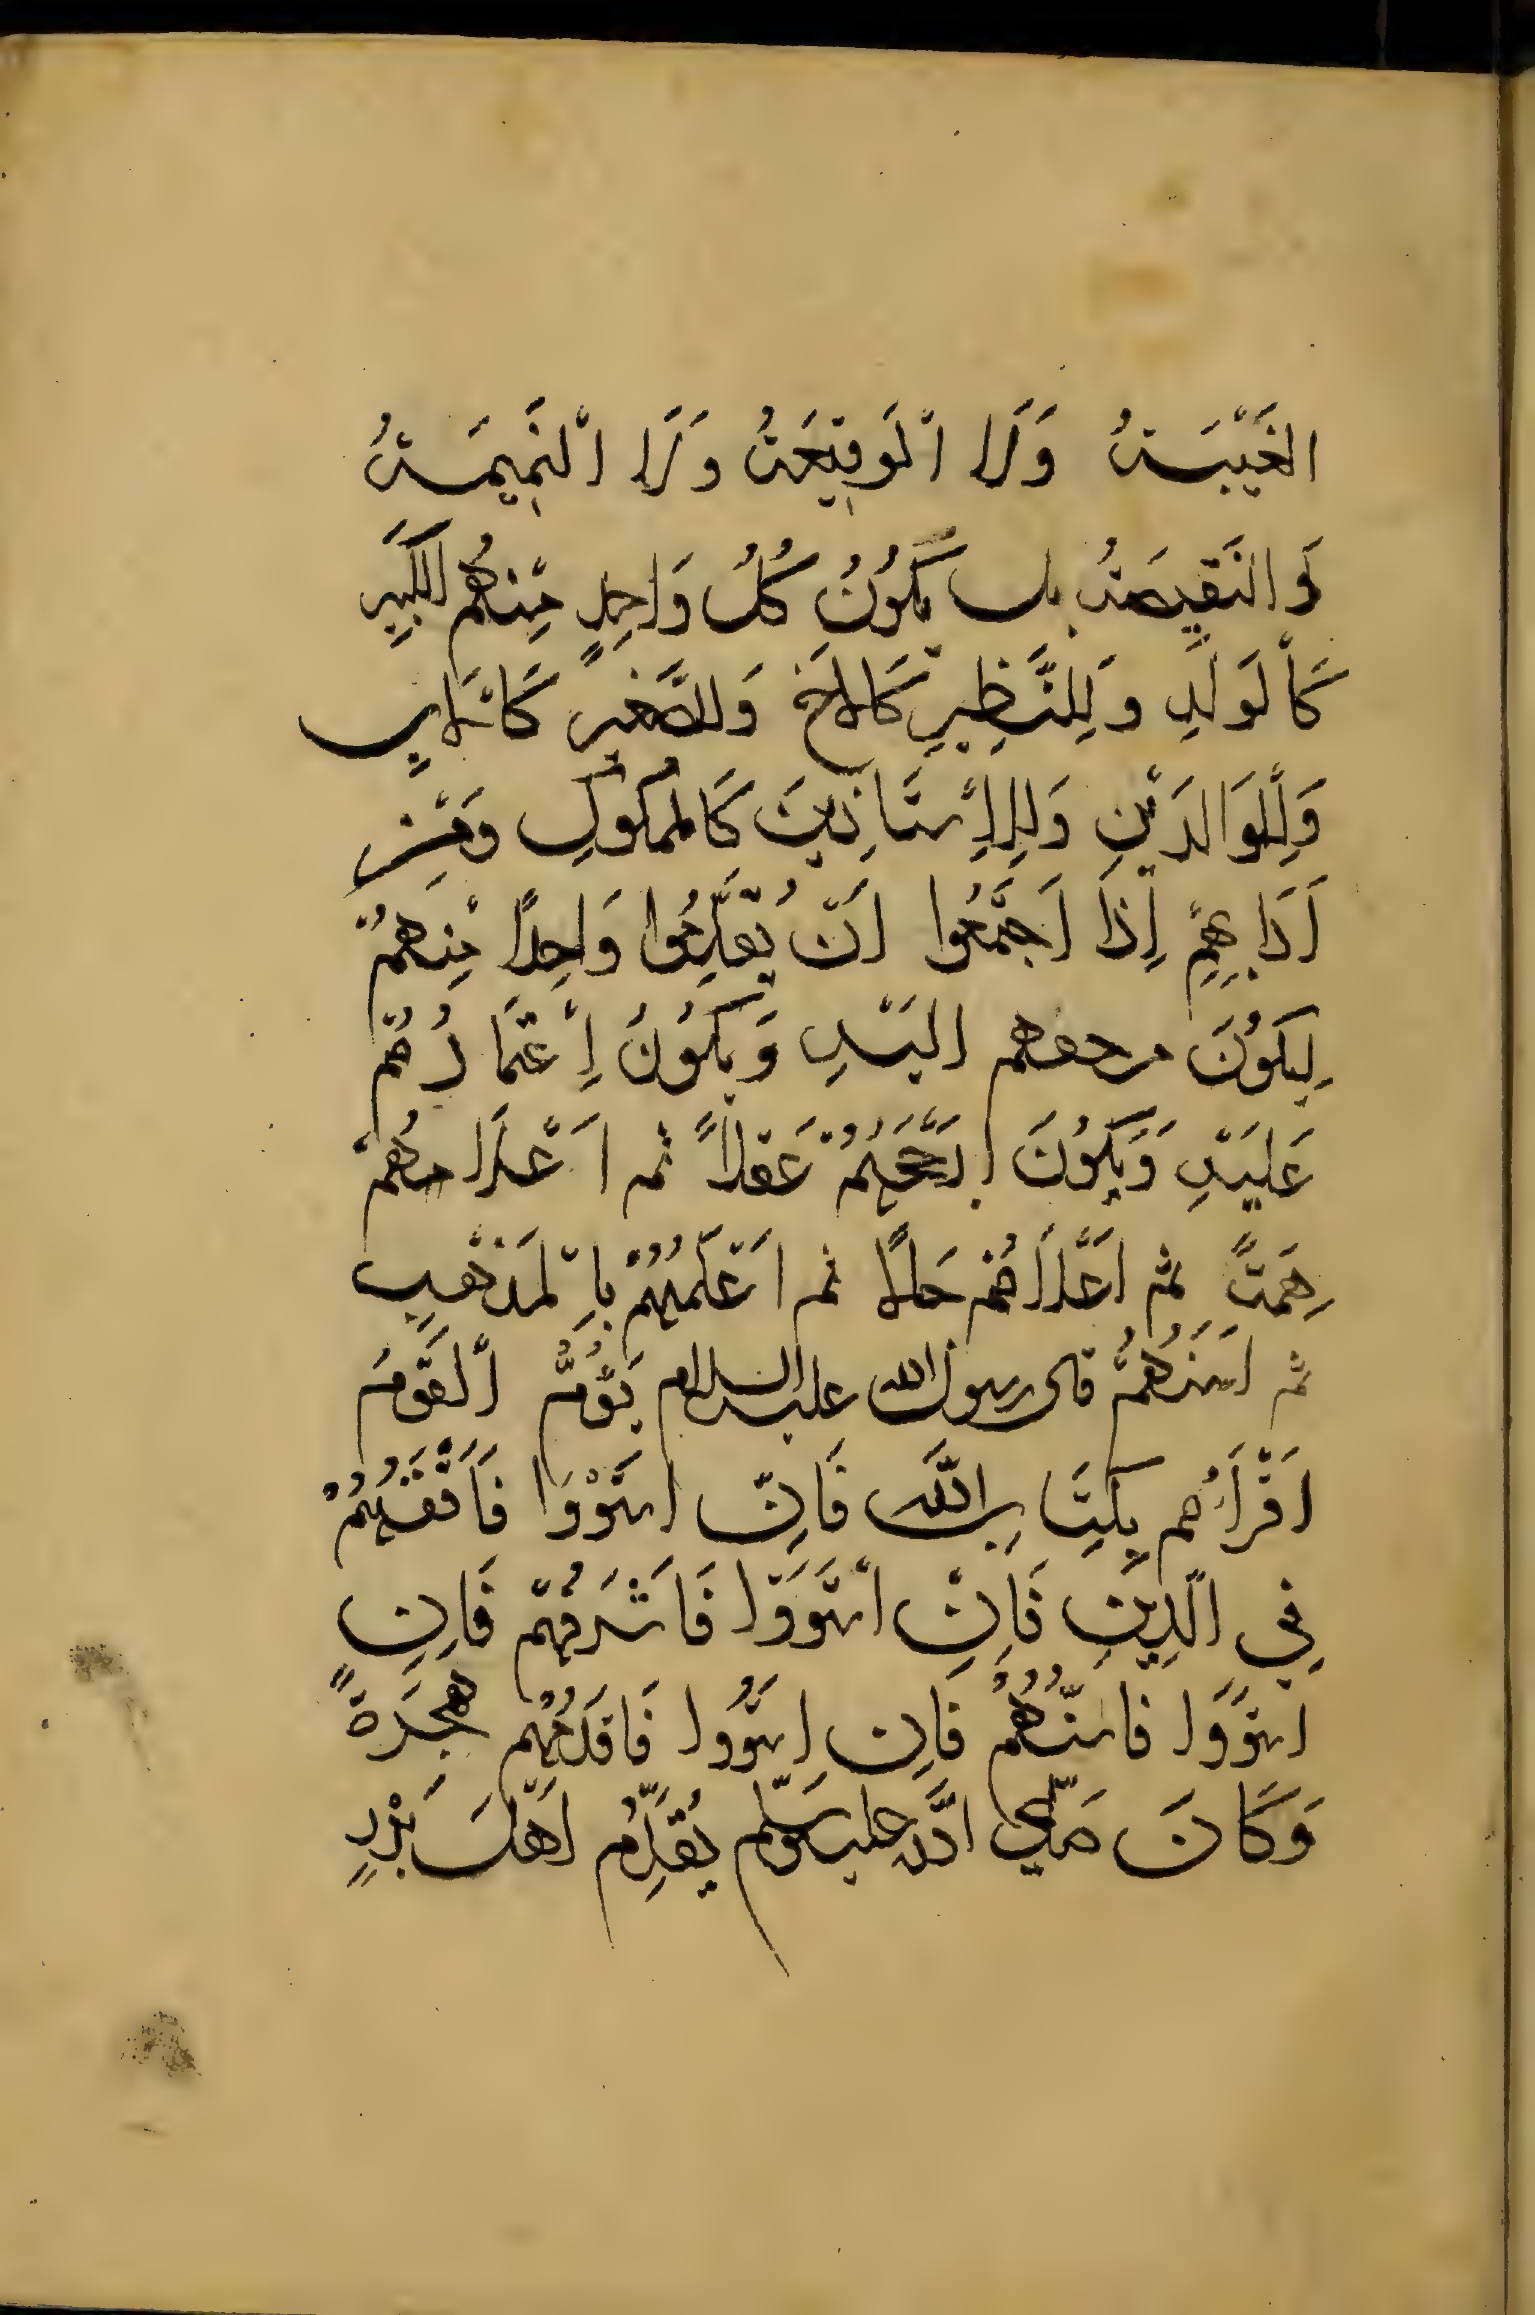 الغَيْبَةُ وَلَا اْلَوقِيْعَةُ وَلَا اْلنَمِيمَةُ
وَالنَقِيصَةُ بل يَكُوُنُ كُلُ وَاحِدٍ مِنهُم للكَبِيرِ
كَاْلوَلَدِ وَلِلنَّظِيرِ كَالاخِ وَللصَّغيرِ كَالابِ
وَلِلْوَالدَيْنِ وَلِلإسْتَاذِينَ كَالمملُوكِ وَمِن
اَدَابِهِمْ اِذَا اَجتَمَعُوا اَنْ يُقَدِّمُوا وَاحِدًا مِنهُمْ
لِيَكوُنَ مرجعهم اليَهِ وَيَكوُنَ اِعْتمَادُهُم
عَليَهِ وَيَكوُنَ ارَجَحَهُمُ عَقلاً ثم اَعْلَاهُم
هِمَةً ثم اَعَلَاهُم حَالًا ثم اَعْلَمَهُمُ بِاْلمَذهَبِ
ثم اَسَنهُمْ قال رسول الله عليه السلام يَوُمُّ اْلقَومَ
اَقْرَاَهُم بِكِتَابِ اللَّهِ فَاِنْ استَوْوَا فَاَفْقَهُهُمْ
فِي الّدِينِ فَاِنْ اسْتَوَوَا فَاَشْرَفُهُم فَاِن
استَوَوَا فاسَنّهُمُ فَاِن استَوَوُا فَاقدَمُهُم هِجرَةً
وَكَانَ صَلّى اللَّه عليه وسَلّم يُقَدِّمُ اَهْلَ بَدْرٍ